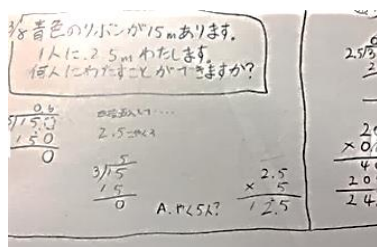 3/8 青色のリボンが15mあります。
1人に、2.5mわたします。
何人にわたすことができますか?
0.6
5)15.0
150
0
2.5
5
3)15
15
0
2.5
× 5
12.5
A. やく5人?
2.5)3
× 0